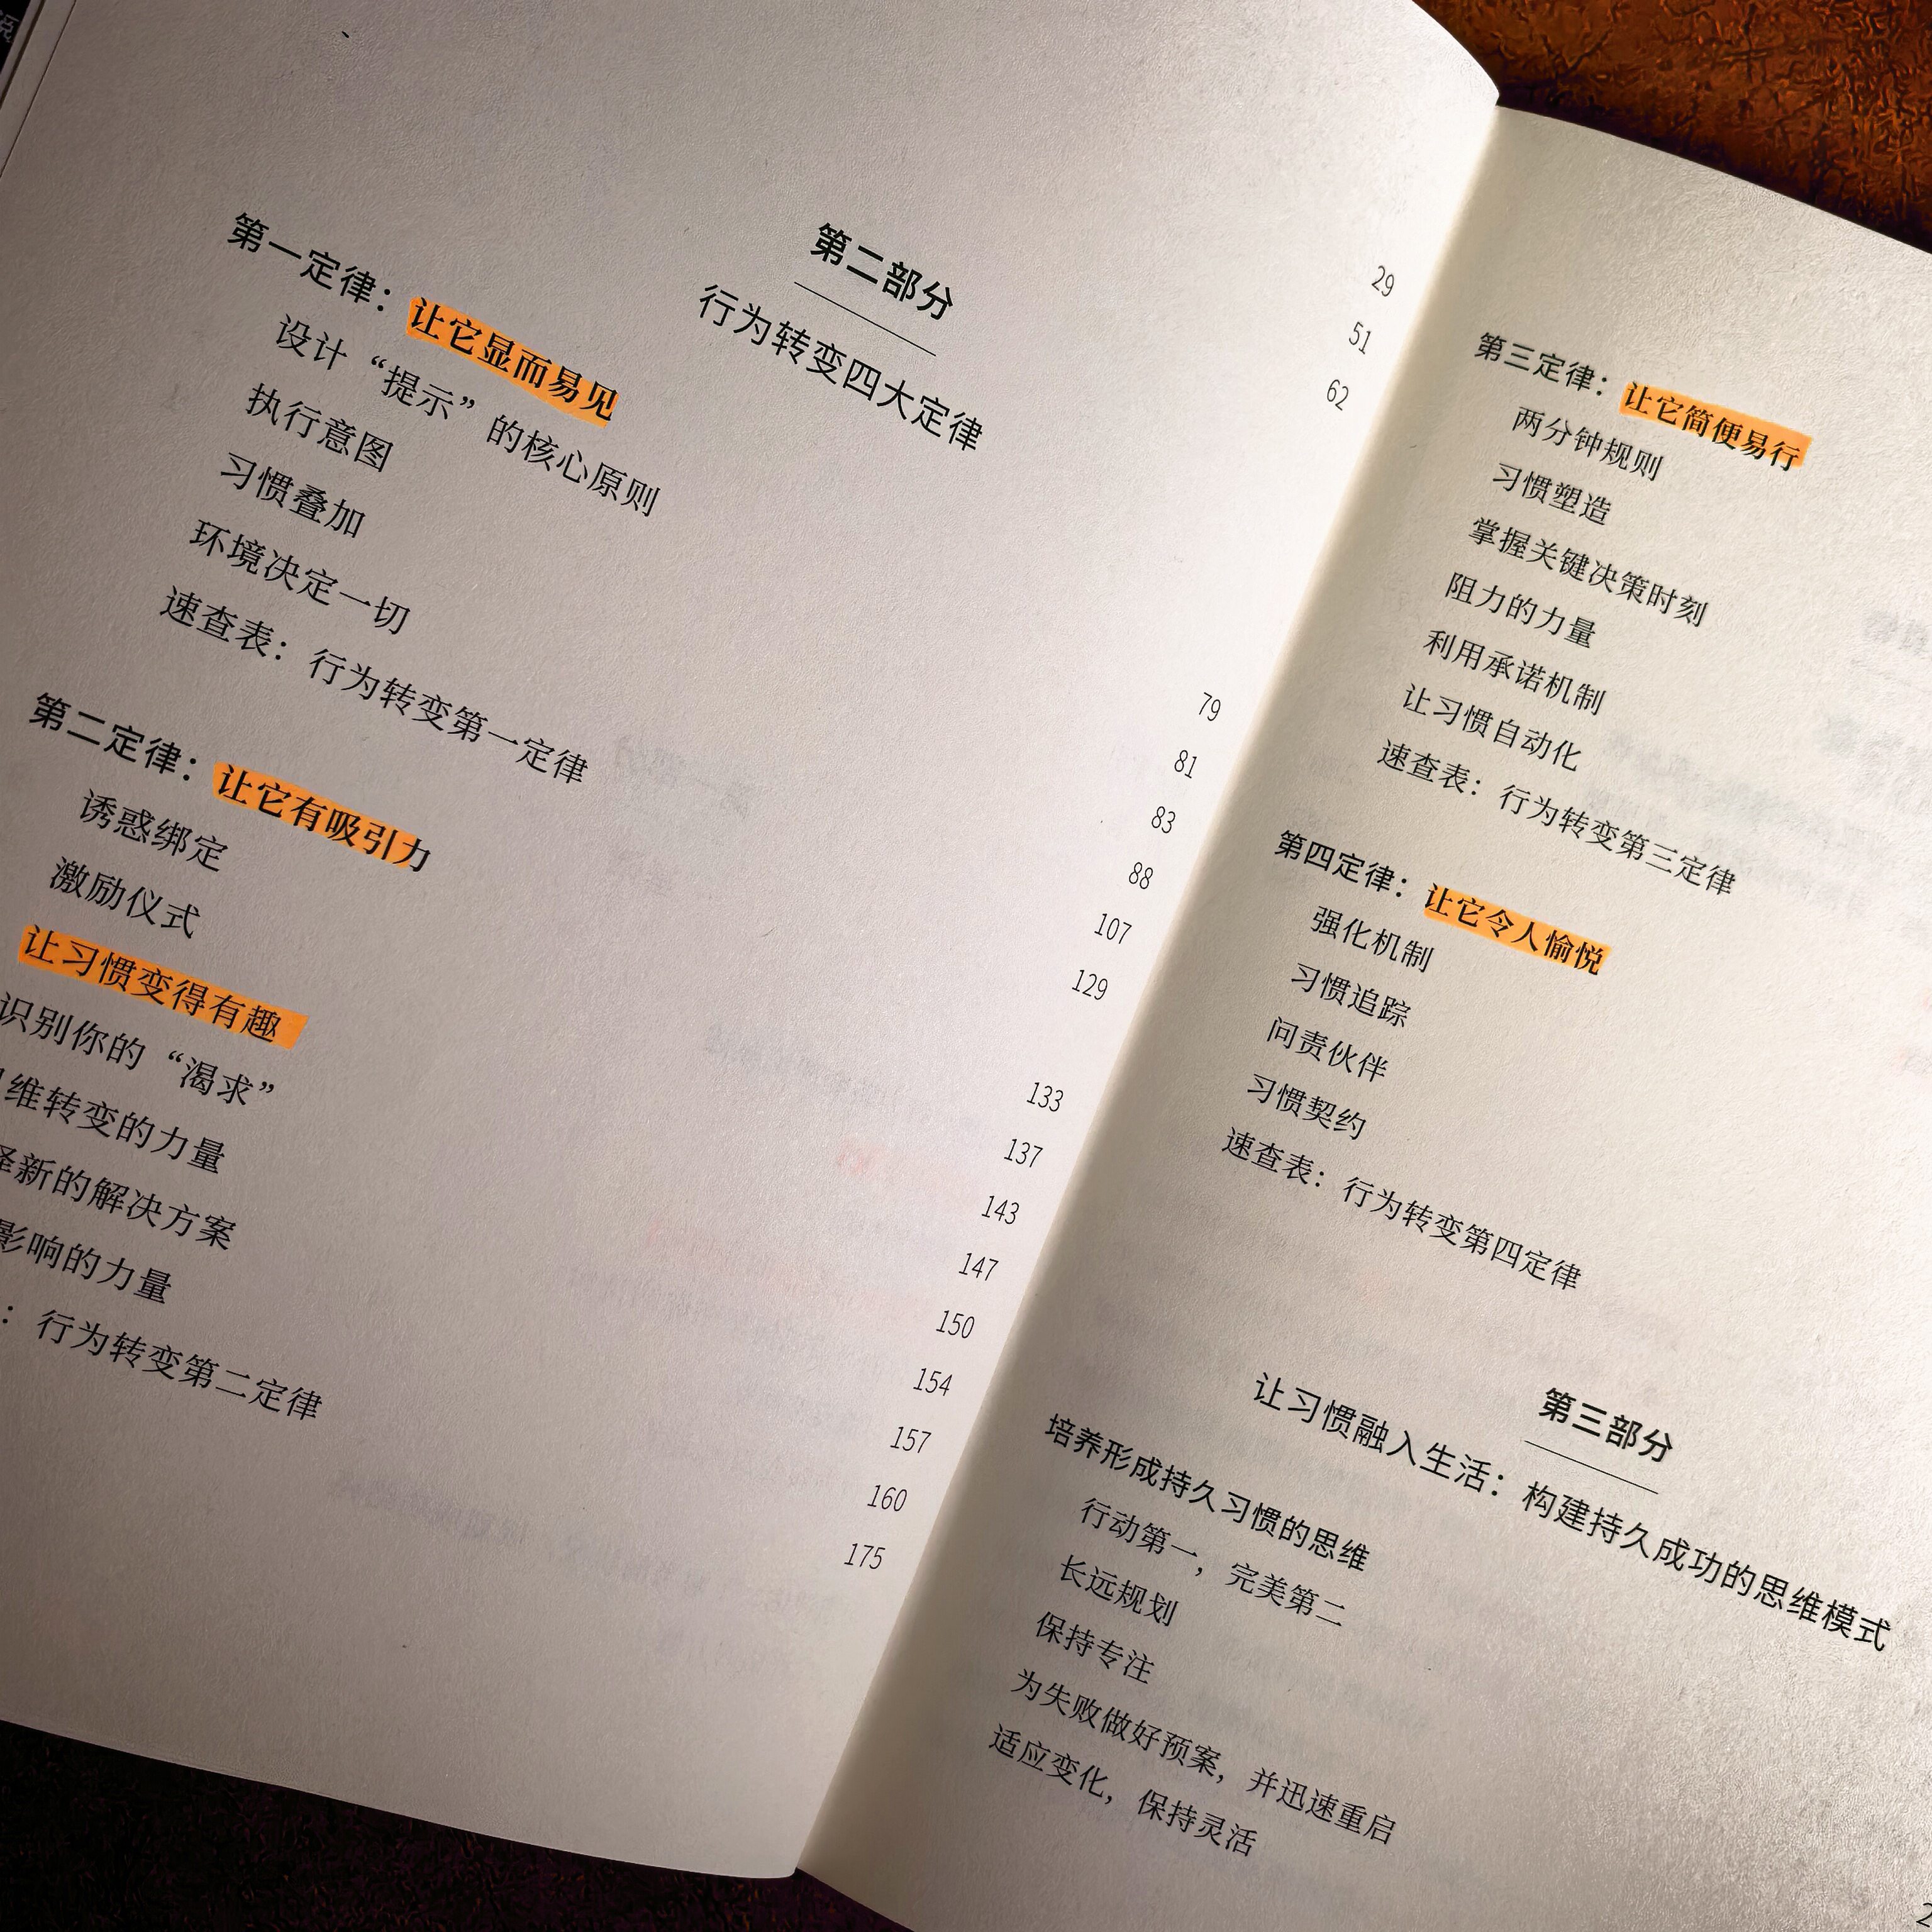 29
51
62
第二部分
行为转变四大定律
第一定律：让它显而易见 79
设计“提示”的核心原则 81
执行意图 83
习惯叠加 88
环境决定一切 107
速查表：行为转变第一定律 129
第二定律：让它有吸引力 133
诱惑绑定 137
激励仪式 143
让习惯变得有趣 147
识别你的“渴求” 150
维转变的力量 154
新的解决方案 157
影响的力量 160
：行为转变第二定律 175
第三定律：让它简便易行
两分钟规则
习惯塑造
掌握关键决策时刻
阻力的力量
利用承诺机制
让习惯自动化
速查表：行为转变第三定律
第四定律：让它令人愉悦
强化机制
习惯追踪
问责伙伴
习惯契约
速查表：行为转变第四定律
第三部分
让习惯融入生活：构建持久成功的思维模式
培养形成持久习惯的思维
行动第一，完美第二
长远规划
保持专注
为失败做好预案，并迅速重启
适应变化，保持灵活